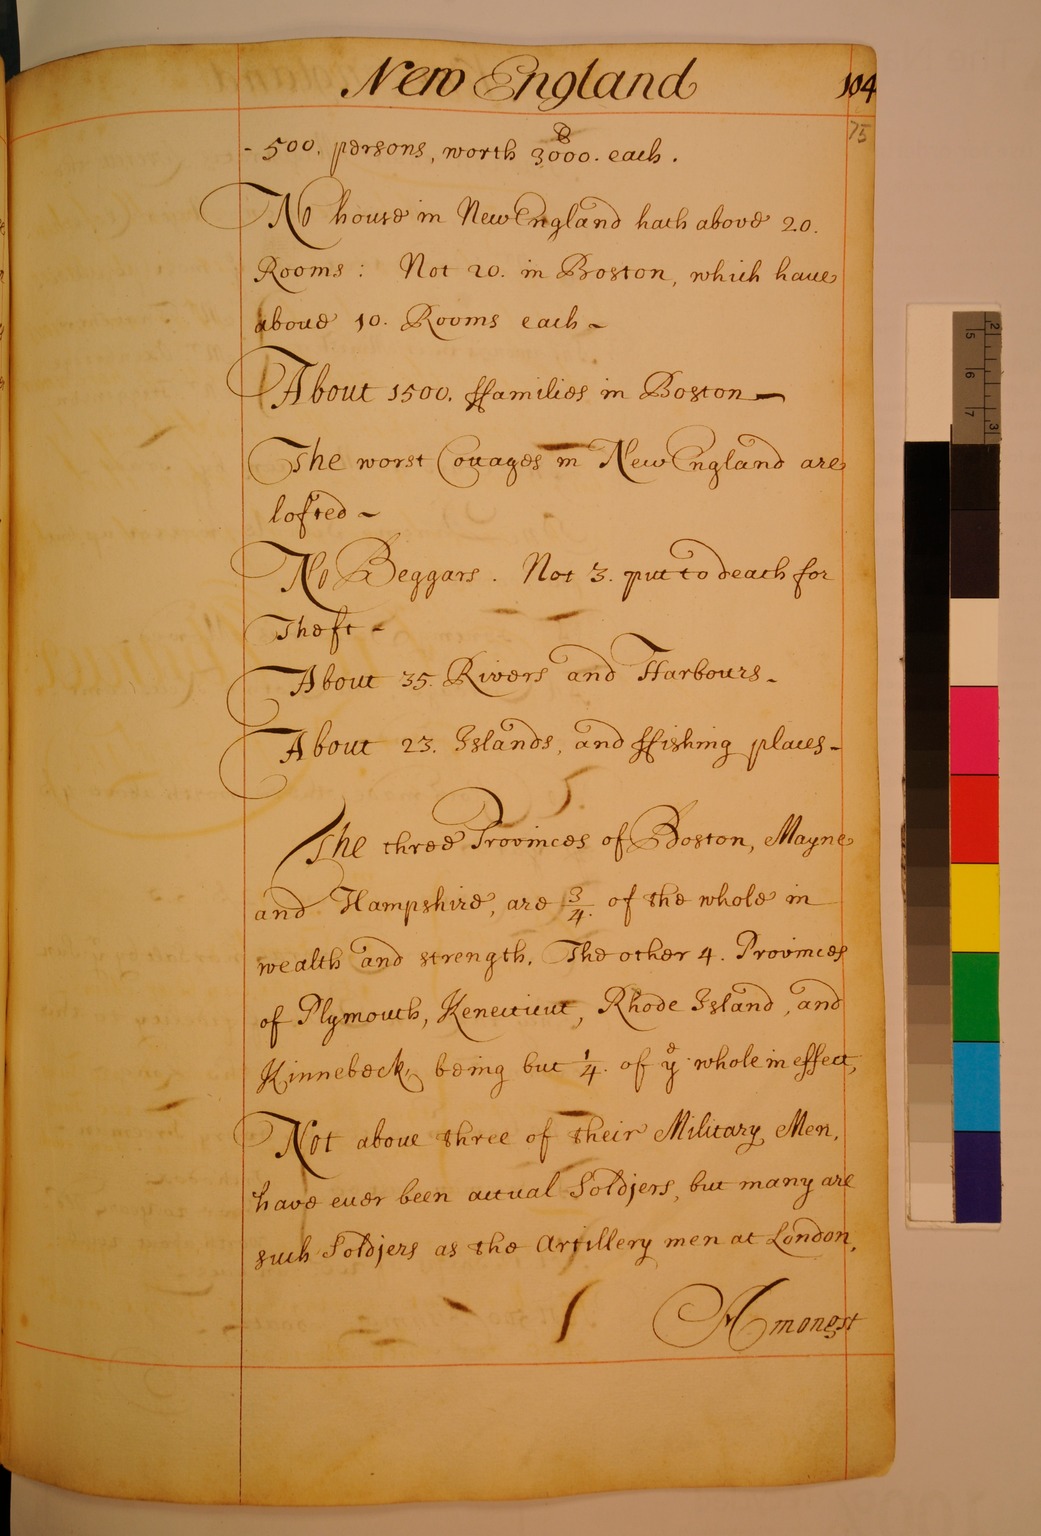 New England
104
75
- 500. persons, worth 3000. each.
No house in New England hath above 20.
Rooms: Not 20. in Boston, which have
above 10. Rooms each ~
About 1500. ffamilies in Boston —
The worst Cottages in New England are
lofted ~
No Beggars. Not 3. put to death for
Theft -
About 35. Rivers and Harbours -
About 23. Islands, and ffishing places -
The three Provinces of Boston, Mayne
and Hampshire, are 3/4. of the whole in
wealth and strength. The other 4. Provinces
of Plymouth, Kenecticut, Rhode Island, and
Kinnebeck, being but 1/4. of yᵉ whole in effect,
Not above three of their Military Men,
have ever been actual Soldjers, but many are
such Soldjers as the Artillery men at London,
Amongst